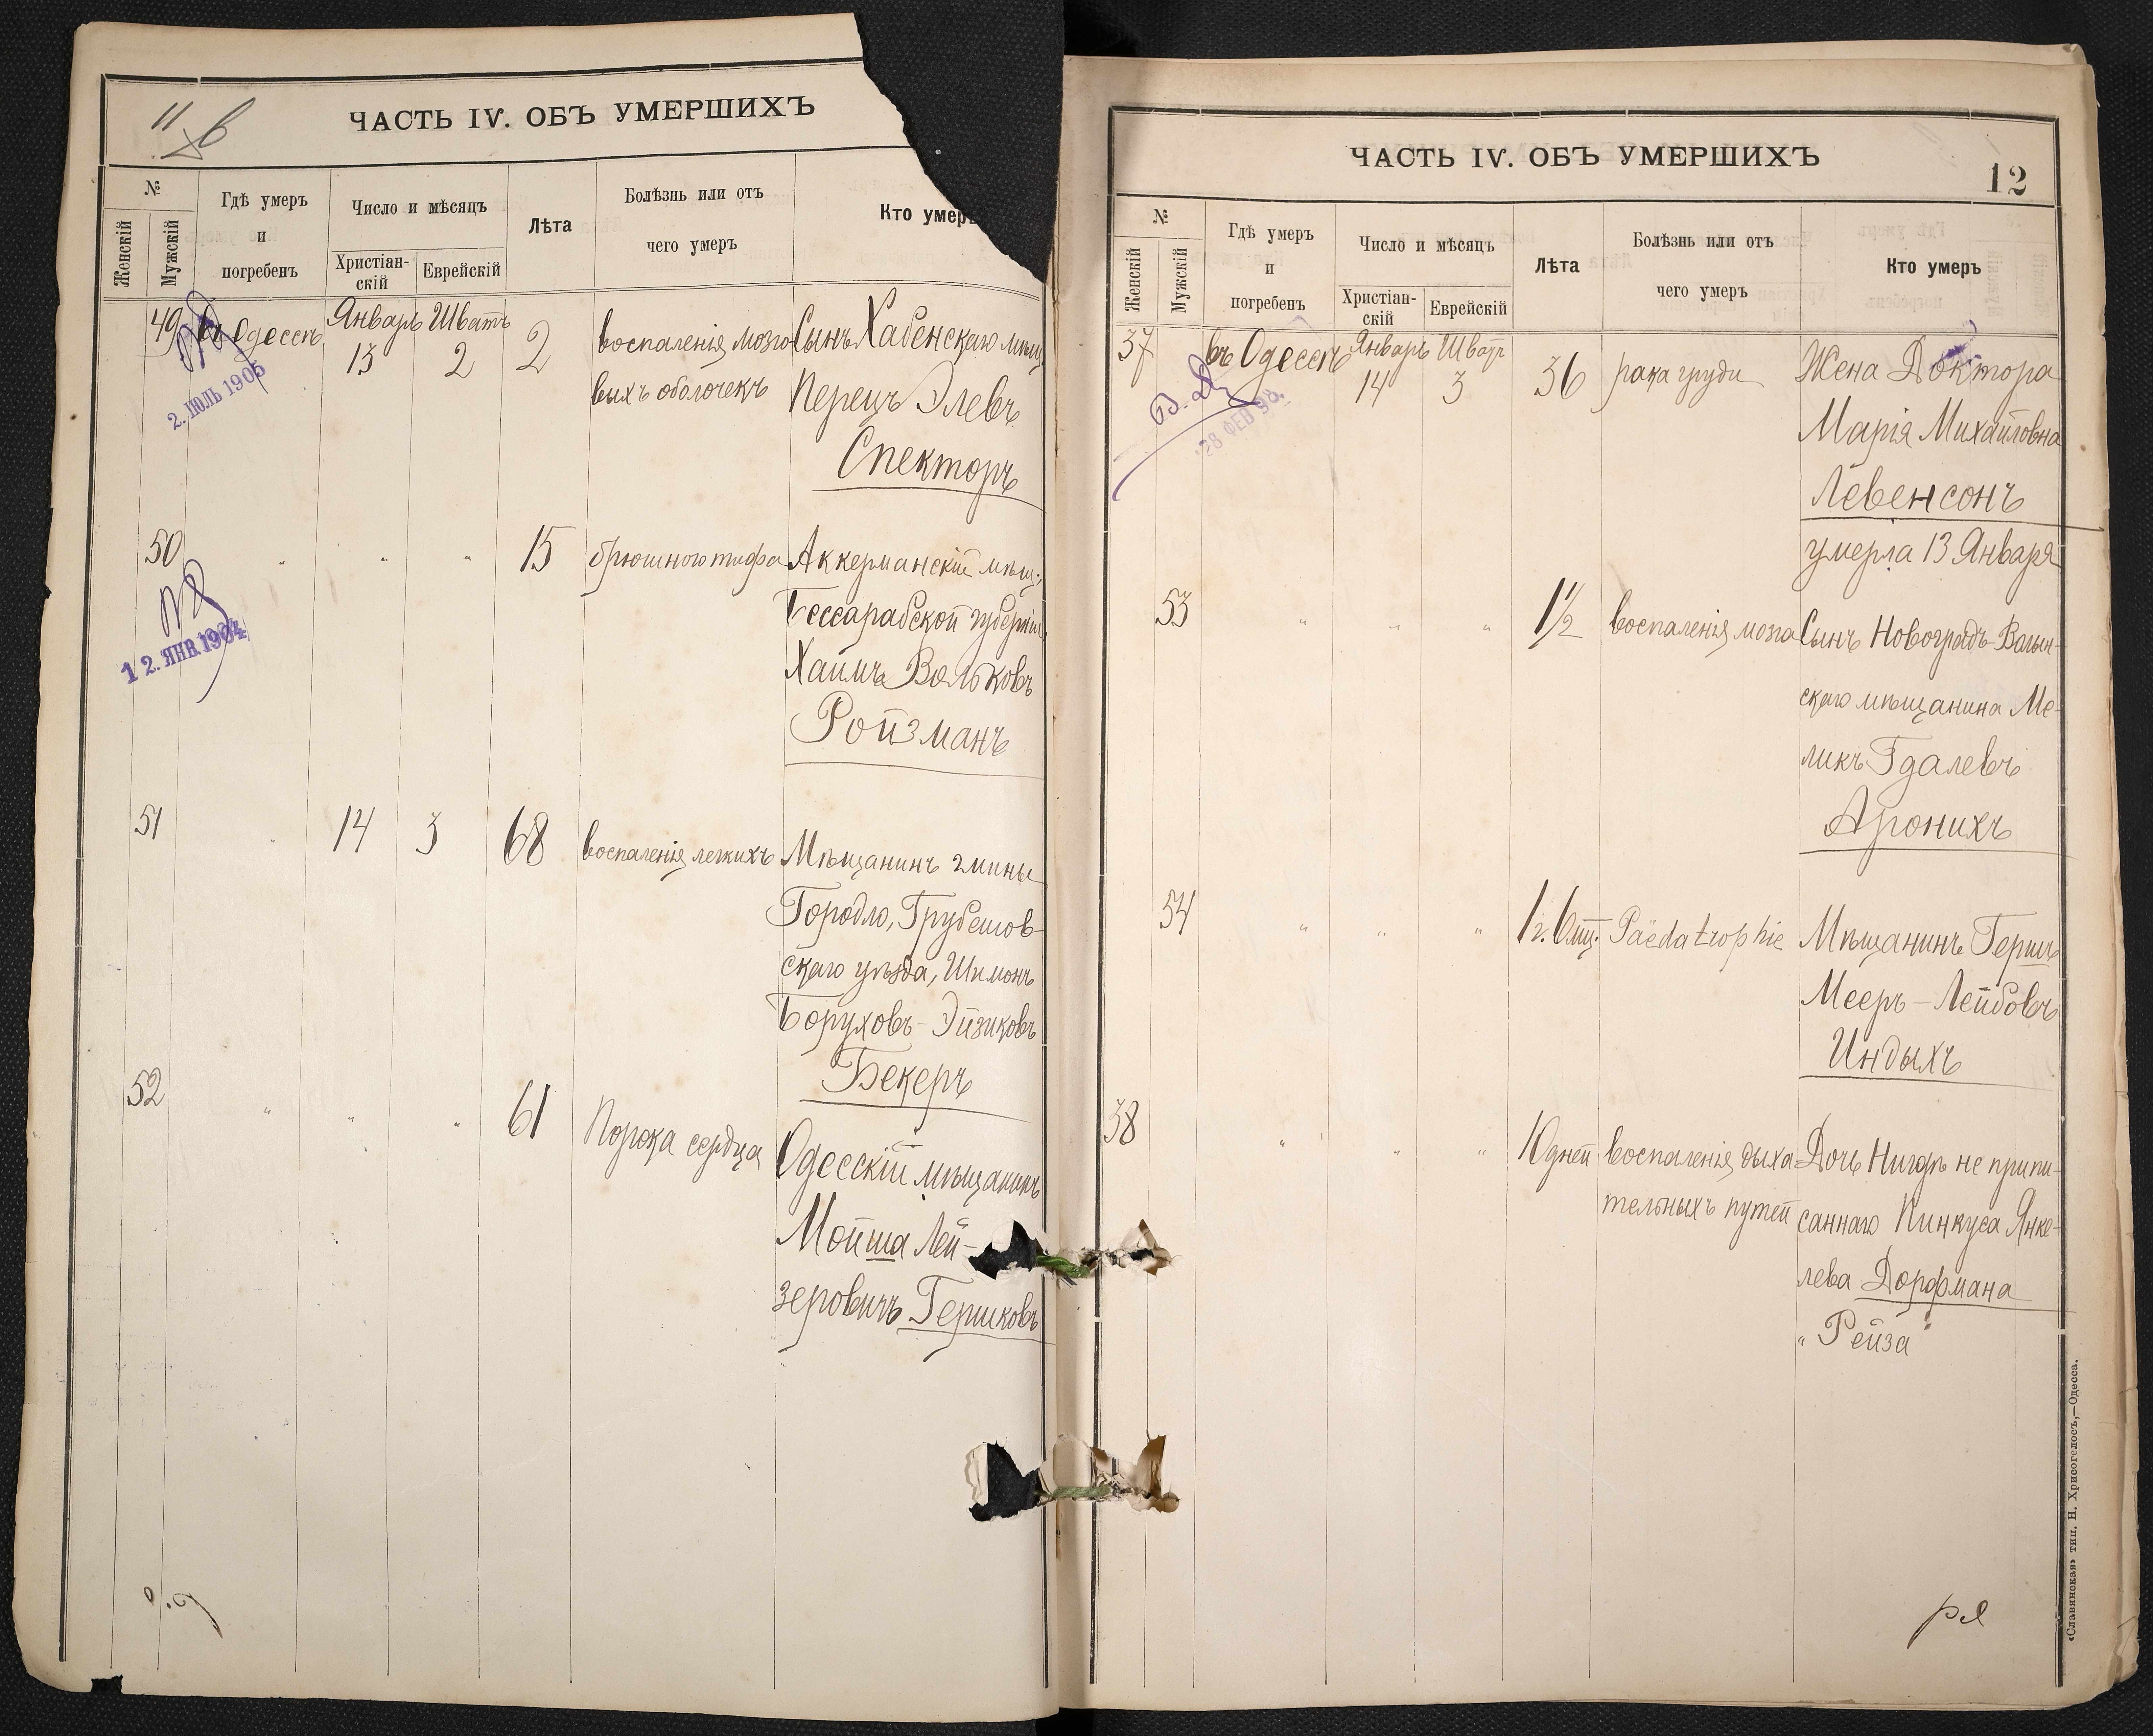 11
ЧАСТЬ IV. ОБЪ УМЕРШИХЪ
№
Женскій
Мужскій
Гдѣ умеръ
и
погребенъ
Число и мѣсяцъ
Христіан-
скій
Еврейскій
Лѣта
Болѣзнь или отъ
чего умеръ
Кто умеръ
49 въ Одессѣ Январь 13 Шватъ 2 2
воспаленія мозго
выхъ оболочекъ
Сынъ Хабенскаго мѣщ
Перецъ Элевъ
Спекторъ
2. ІЮЛЬ 1905
50 " " " 15 брюшного тифа
Аккерманскій мѣщ.
Бессарабской губерніи
Хаимъ Вольковъ
Ройзманъ
12. ЯНВ. 1904
51 " 14 3 68 воспаленія легкихъ
Мѣщанинъ гмины
Городло, Грубешов-
скаго уѣзда, Шимонъ
Боруховъ-Эйзиковъ
Бекеръ
52 " " " 61 Порока сердца
Одесскій мѣщанинъ
Мойша Лей-
зеровичъ Гершковъ
ЧАСТЬ IV. ОБЪ УМЕРШИХЪ
12
№
Женскій
Мужскій
Гдѣ умеръ
и
погребенъ
Число и мѣсяцъ
Христіан-
скій
Еврейскій
Лѣта
Болѣзнь или отъ
чего умеръ
Кто умеръ
37 въ Одессѣ Январь 14 Шватъ 3 36 рака груди
Жена Доктора
Марія Михайловна
Левенсонъ
умерла 13 Января
28 ФЕВ 98.
53 " " " 1 1/2 воспаленія мозга
Сынъ Новоградъ-Волын-
скаго мѣщанина Ме-
ликъ Гдалевъ
Аронихъ
54 " " " 1 г. 6 мц. Päedatrophie
Мѣщанинъ Гершъ
Мееръ-Лейбовъ
Индыхъ
38 " " " 10 дней
воспаленія дыха
тельныхъ путей
Дочь Нигдѣ не припи-
саннаго Пинкуса Янке-
лева Дорфмана
"Рейза"
«Славянская» тип. Н. Хрисогелосъ,—Одесса.